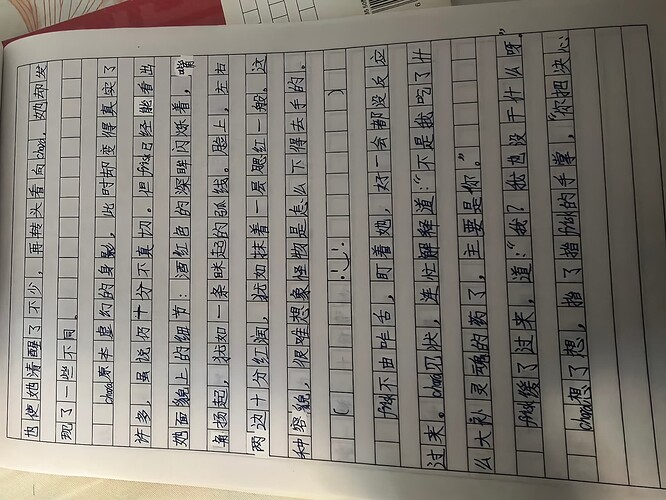 也使她清醒了不少，再转头看向chara，她却发
现了一些不同。
chara原本虚幻的身影，此时却变得真实了
许多，虽说仍十分不真切。但frisk已经能看出
她面貌上的细节：酒红色的深眸闪烁着，嘴
角扬起，犹如一条眯起的弧线。脸上，左右
两边十分红润，犹如抹着一层腮红一般。这
种容貌，很难想象怪物是怎么下得去手的。
( :‿: )
frisk不由咋舌，盯着她，好一会都没反应
过来。chara见状，连忙解释道：“不是我吃了什
么大补灵魂的药了，主要是你。”
frisk缓了过来，道：“我？我也没干什么呀。”
chara想了想，捎了捎frisk的手掌，“你把决心